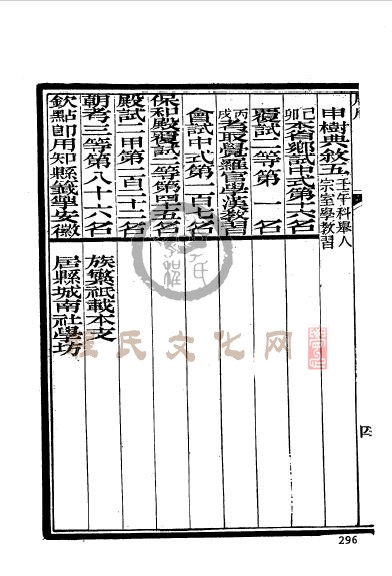 申樹典敘五
壬午科舉人
宗室學教習
己卯本省鄉試中式第十六名
覆試一等第一名
丙戌考取覺羅官學漢教習
會試中式第一百七名
保和殿覆試二等第四十五名
殿試二甲第一百二十二名
朝考三等第八十六名
欽點即用知縣籤掣安徽
族繁祗載本支
居縣城南社學坊
氏文化网
四
296